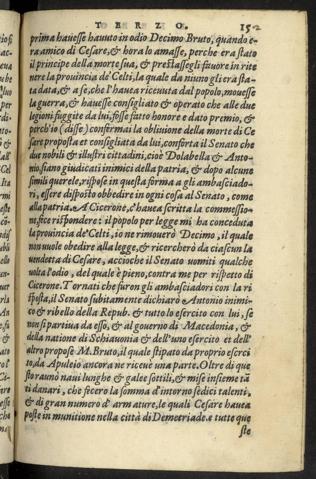 TO ERZO. 152
prima havesse havuto in odio Decimo Bruto, quando e-
ra amico di Cesare, & hora lo amasse, perche era stato
il principe della morte sua, & prestassegli favore in rite
nere la provincia de' Celti, la quale da niuno gli era sta-
ta data, & a se, che l'havea ricevuta dal popolo, movesse
la guerra, & havesse consigliato & operato che alle due
legioni fuggite da lui, fosse fatto honore e dato premio, &
perch'io (disse) confermai la oblivione della morte di Ce
sare proposta et consigliata da lui, conforta il Senato che
due nobili & illustri cittadini, cioè Dolabella & Anto-
nio siano giudicati inimici della patria, & dopo alcune
simili querele, rispose in questa forma a gli ambasciado-
ri, essere disposto obbedire in ogni cosa al Senato, come
alla patria. A Cicerone, c'havea scritta la commessio-
ne, fice rispondere: il popolo per legge mi ha conceduta
la provincia de' Celti, io ne rimoverò Decimo, il quale
non vuole obedire alla legge, & ricercherò da ciascun la
vendetta di Cesare, accioche il Senato vomiti qualche
volta l'odio, del quale è pieno, contra me per rispetto di
Cicerone. Tornati che furon gli ambasciadori con la ri
sposta, il Senato subitamente dichiarò Antonio inimi-
co & ribello della Repub. & tutto lo esercito con lui, se
non si partiva da esso, & al governo di Macedonia, &
della natione di Schiavonia & dell'uno esercito et dell'
altro propose M. Bruto, il quale stipato da proprio eserci
to, da Apuleio ancora ne ricevè una parte. Oltre di que
sto raunò navi lunghe & galee sottili, & mise insieme tã
ti danari, che fecero la somma d'intorno sedici talenti,
& di gran numero d'armature, le quali Cesare havea
poste in munitione nella città di Demetriade. a tutte que
ste